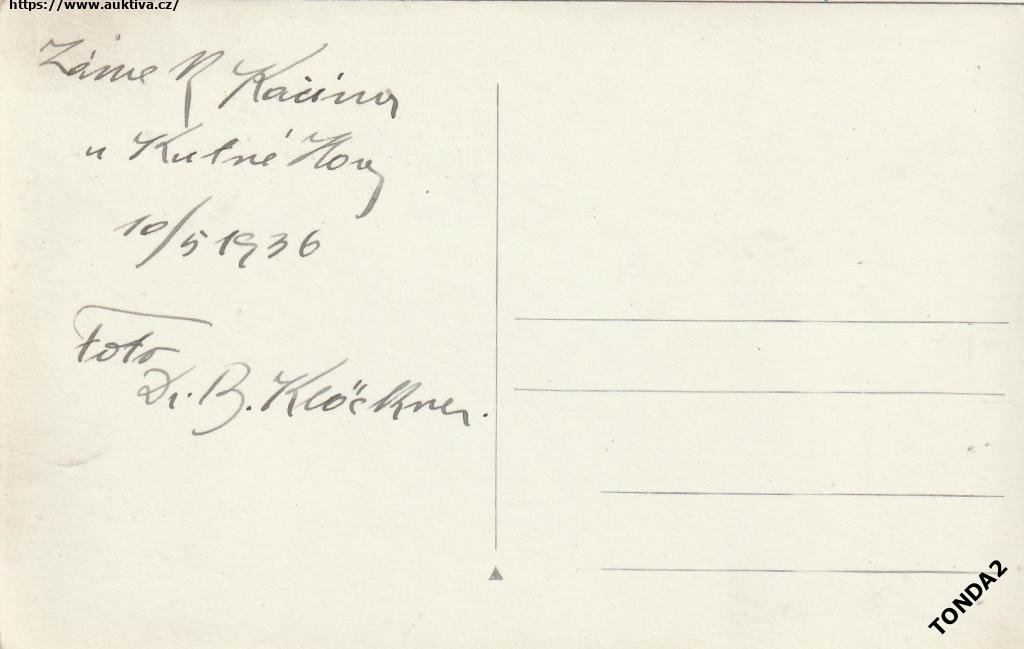 https://www.auktiva.cz/
Zámek Kačina
u Kutné Hory
10/5 1936
Foto
Dr. B. Klöckner.
TONDA2